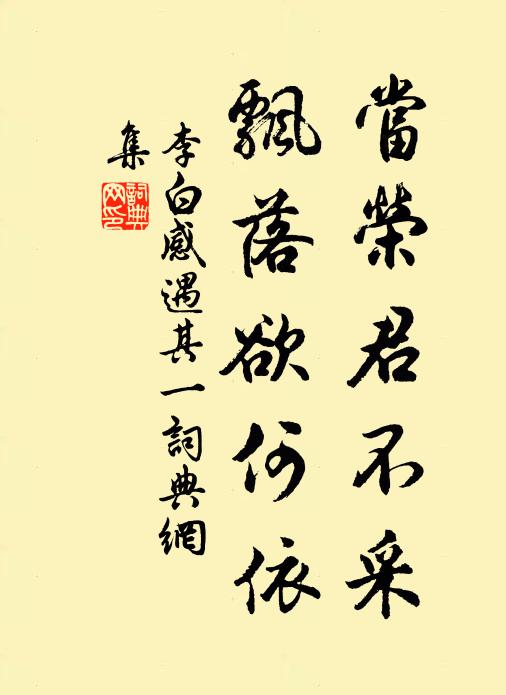 當榮君不采
飄落欲何依
李白感遇其一詞典網
集
詞典
网印